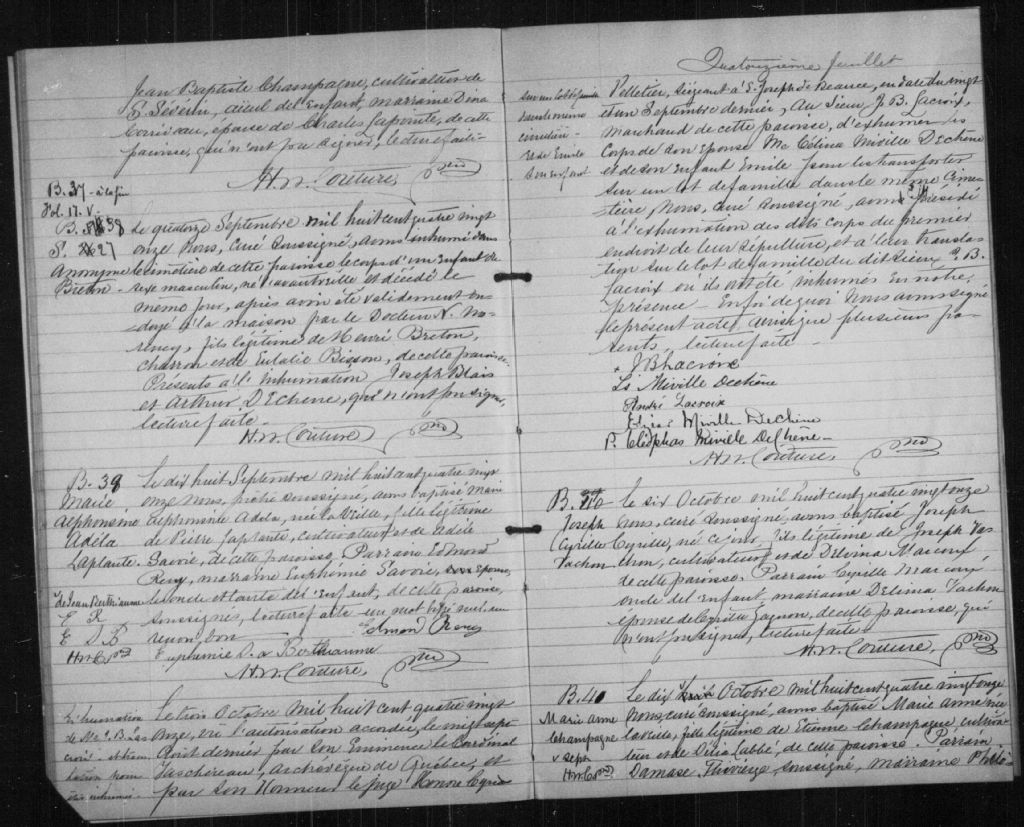 Jean Baptiste Champagne, cultivateur de
S. Sévérin, aïeul de l'enfant, marraine Dina
épouse de Charles Lapointe, de cette
paroisse, qui n'ont pu signer, lecture faite -
H. N. Couture, Ptre
B. 37 - à la fin
Fol. 17. V.
B. 38
S. 27
Anonyme
Breton -
Le quatorze Septembre mil huit cent quatre vingt
onze nous, curé soussigné, avons inhumé dans
le cimetière de cette paroisse le corps d'un enfant du
sexe masculin, né l'avant veille et décédé le
même jour, après avoir été validement on-
doyé à la maison par le Docteur N. Mo-
rency, fils légitime de Henri Breton,
charron et de Eulalie Bisson, de cette paroisse.
Présents à l'inhumation Joseph Blais
et Arthur DEchene, qui n'ont pu signer,
lecture faite -
H. N. Couture Ptre
B. 39
Marie
Alphonsine
Adéla
Laplante.
Le dix huit Septembre mil huit cent quatre vingt
onze nous, prêtre soussigné, avons baptisé Marie
Alphonsine Adéla, née la veille, fille légitime
de Pierre Laplante, cultivateur et de Adèle
Savoie, de cette paroisse. Parrain Edmond
Remy, marraine Euphémie Savoie, épouse
de Jean Berthiaume
E R
E D B
H N C Ptre
oncle et tante de l'enfant, de cette paroisse,
soussignés, lecture faite un mot rayé nul un
renvoi bon
Edmond Remy
Euphemie D. a Berthiaume
H. N. Couture Ptre
Exhumation
de Me J. B. La-
croix et trans-
lation pour
être inhumée
Le trois Octobre mil huit cent quatre vingt
onze, vu l'autorisation accordée, le vingt sept
Août dernier par Son Eminence le Cardinal
Taschereau, archévêque de Québec, et
par Son Honneur le juge Honoré Cyrias
Quatorzième feuillet
sur un lot de famille
dans le même
cimetière -
et de Emile
son enfant
Pelletier, siégeant à S. Joseph de Beauce, en date du vingt
et un Septembre dernier, au Sieur J. B. Lacroix,
Marchand de cette paroisse, d'exhumer les
Corps de son Epouse Me Célina Miville Dechène
et de son Enfant Emile pour les transporter
sur un lot de famille dans le même Cime-
tière, Nous, curé soussigné, avons présidé
à l'exhumation des dits corps du premier
endroit de leur sépulture, et à leur transla-
tion sur le lot de famille du dit Sieur J. B.
Lacroix où ils ont été inhumés en notre
présence - En foi de quoi Nous avons signé
le présent acte, ainsi que plusieurs pa-
rents, lecture faite -
J B Lacroix
Ls Miville Dechène
André Lacroix
Elzear Miville DeChène
P. Cléophas Miville DeChêne -
H. N. Couture, Ptre
B. 40
Joseph
Cyrille
Vachon
le six Octobre mil huit cent quatre vingt onze
nous, curé soussigné, avons baptisé Joseph
Cyrille, né ce jour, fils légitime de Joseph Va-
chon, cultivateur et de Delima Marcoux,
de cette paroisse. Parrain Cyrille Marcoux
oncle de l'enfant, marraine Delima Vachon
épouse de Cyrille Gagnon, de cette paroisse, qui
n'ont pu signer, lecture faite
H. N. Couture, Ptre
B. 41
Marie Anne
Champagne
H N C Ptre
Le dix Octobre mil huit cent quatre vingt onze
Nous, curé soussigné, avons baptisé Marie Anne née
la veille, fils légitime de Etienne Champagne cultiva-
teur et de Délia Labbé, de cette paroisse. Parrain
Damase Thivierge soussigné, marraine Philo-